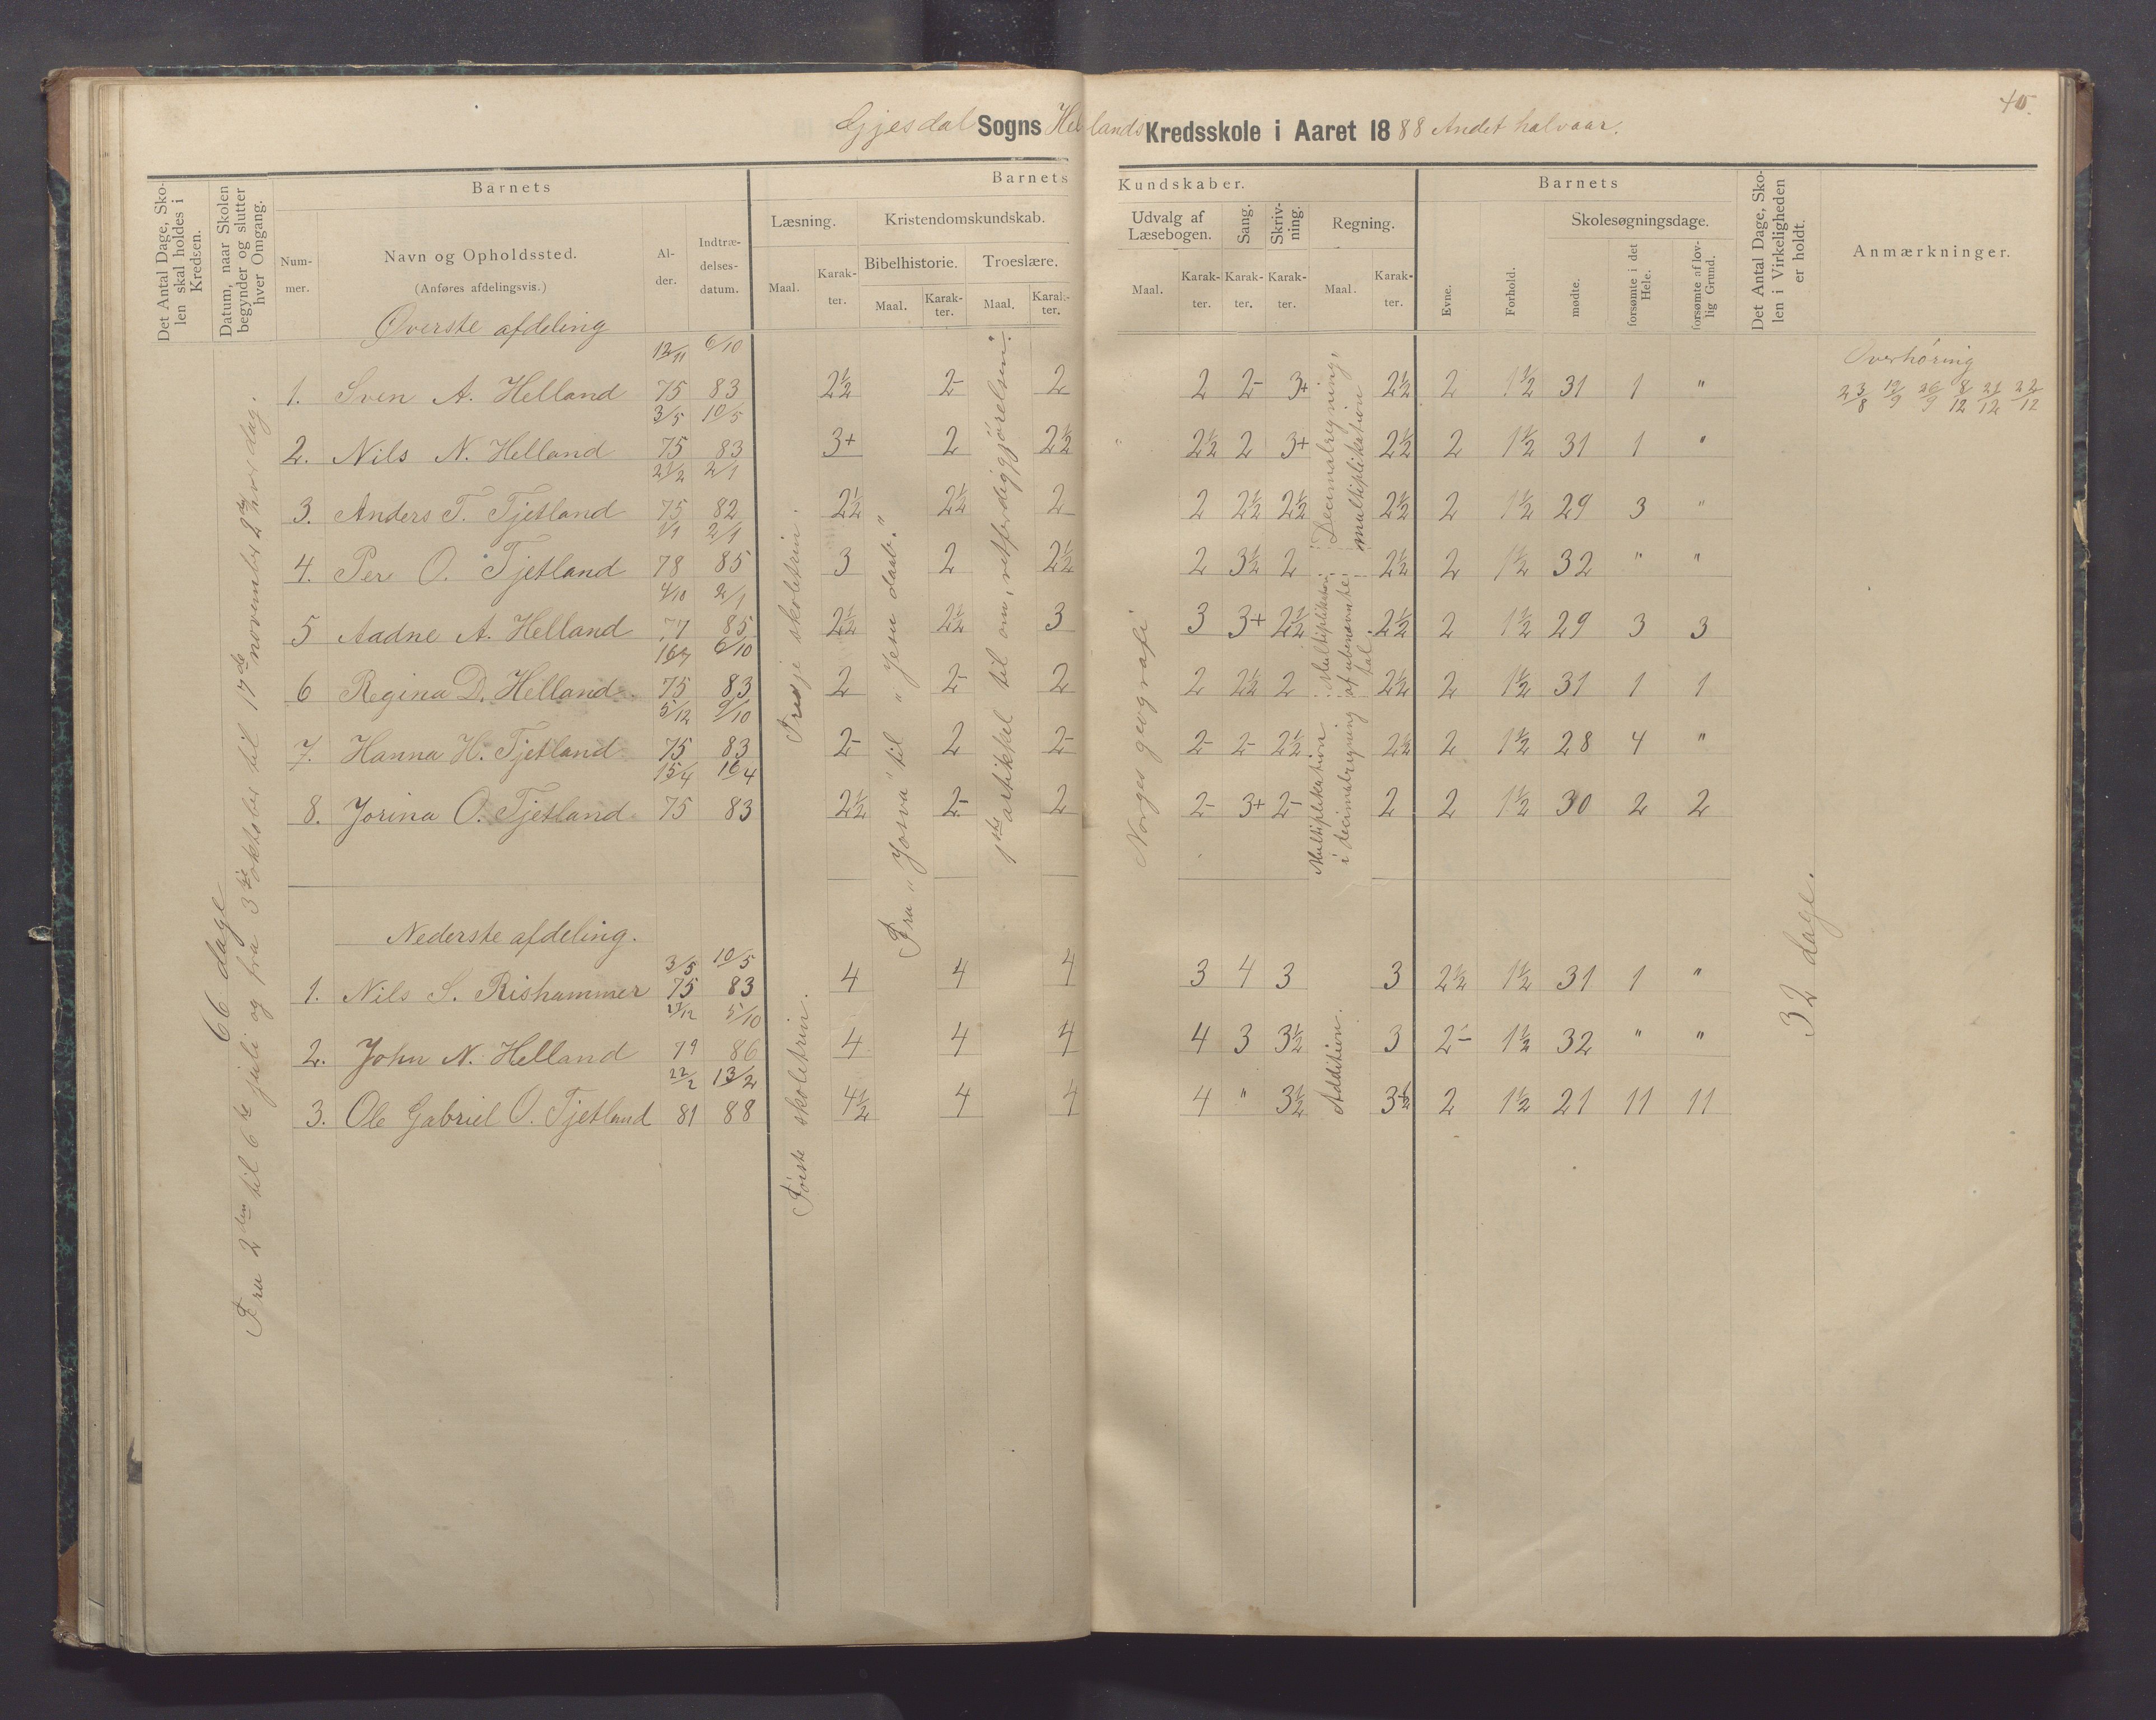 40.
Gjesdal Sogns Hellands Kredsskole i Aaret 1888 Andet halvaar.
Det Antal Dage, Skolen skal holdes i Kredsen.
Datum, naar Skolen begynder og slutter hver Omgang.
Barnets
Nummer.
Navn og Opholdssted.
(Anføres afdelingsvis.)
Alder.
Indtrædelsesdatum.
Barnets Kundskaber.
Læsning.
Maal.
Karakter.
Kristendomskundskab.
Bibelhistorie.
Maal.
Karakter.
Troeslære.
Maal.
Karakter.
Udvalg af Læsebogen.
Maal.
Karakter.
Sang.
Karakter.
Skrivning.
Karakter.
Regning.
Maal.
Karakter.
Barnets
Evne.
Forhold.
Skolesøgningsdage.
mødte.
forsømte i det Hele.
forsømte af lovlig Grund.
Det Antal Dage, Skolen i Virkeligheden er holdt.
Anmærkninger.
66 dage
Fra 2den til 6te juli og fra 3die oktober til 17de november 2den hver dag.
Øverste afdeling
1. Sven A. Helland 12/11 75 6/10 83 2½ 2- 2 2 2- 3+ 2½ 2 1½ 31 1 "
2. Nils N. Helland 3/5 75 10/5 83 3+ 2 2½ " 2½ 2 3+ 2½ 2 1½ 31 1 "
3. Anders T. Tjetland 75 2/1 82 2½ 2½ 2 2 2½ 2½ 2½ 2 1½ 29 3 "
4. Per O. Tjetland 1/1 78 2/1 85 3 2 2½ 2 3½ 2 2½ 2 1½ 32 " "
5 Aadne A. Helland 77 2/1 85 2½ 2½ 3 3 3+ 2½ 2½ 2 1½ 29 3 3
6 Regina D. Helland 75 6/10 83 2 2- 2 2 2½ 2 2½ 2 1½ 31 1 1
7. Hanna H. Tjetland 5/12 75 9/10 83 2- 2 2- 2- 2- 2½ 2½ 2 1½ 28 4 "
8. Jorina O. Tjetland 15/4 75 16/4 83 2½ 2- 2 2- 3+ 2- 2 2 1½ 30 2 2
Tredje skoletrin.
Fra "Josva" til "Jesu daab."
1ste artikkel til om, retferdiggjørelsen.
Norges geografi
Decimalregning, multiplikation
Multiplikation af ubenævnte tal.
Multiplikation i decimalregning
Overhøring
23/8 12/9 26/9 8/12 21/12 22/12
Nederste afdeling.
1. Nils S. Rishammer 3/5 75 10/5 83 4 4 4 3 4 3 3 2½ 1½ 31 1 "
2. John N. Helland 79 5/10 86 4 4 4 4 3 3½ 3 2- 1½ 32 " "
3. Ole Gabriel O. Tjetland 22/2 81 13/2 88 4½ 4 4 4 " 3½ 3½ 2 1½ 21 11 11
Første skoletrin.
Addition.
32 dage.